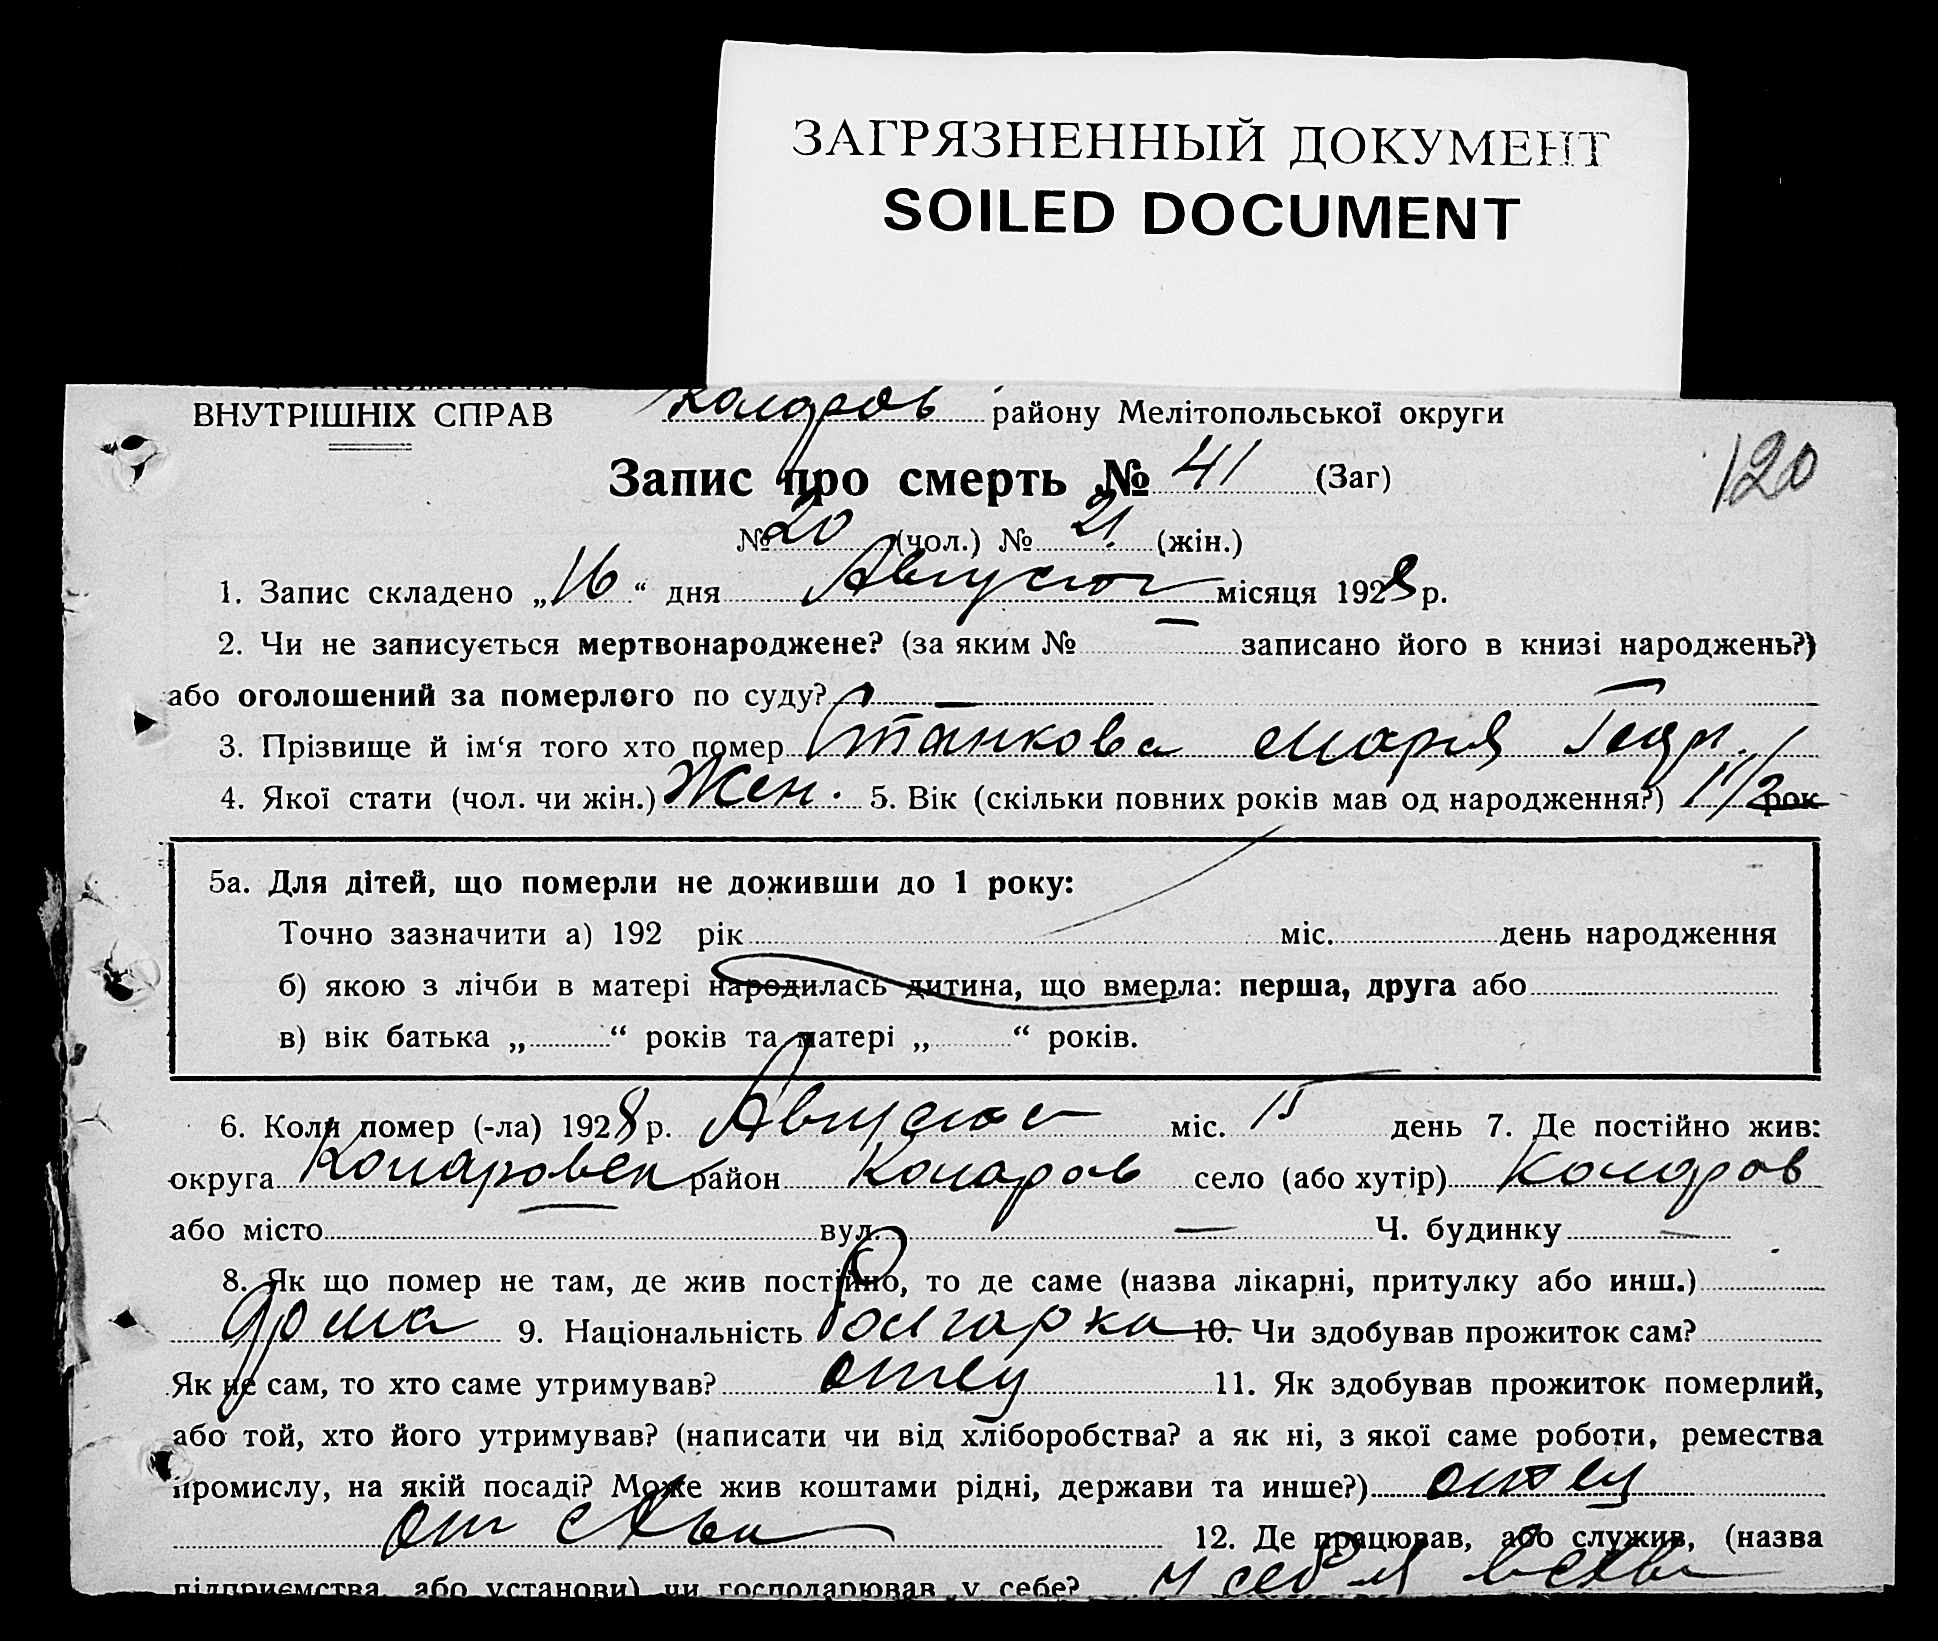 ЗАГРЯЗНЕННЫЙ ДОКУМЕНТ
SOILED DOCUMENT
ВНУТРІШНІХ СПРАВ району Мелітопольської округи
120
Запис про смерть № 41 (Заг)
№ 20 (чол.) № 21 (жін.)
1. Запис складено „16“ дня Августа місяця 1928 р.
2. Чи не записується мертвонароджене? (за яким № — записано його в книзі народжень?)
або оголошений за померлого по суду? —
3. Прізвище й ім‘я того хто помер Станкова Мария
4. Якої стати (чол. чи жін.) Жен. 5. Вік (скільки повних років мав од народження?) 1 1/2 рок
5а. Для дітей, що померли не доживши до 1 року:
Точно зазначити а) 192 рік міс. день народження
б) якою з лічби в матері народилась дитина, що вмерла: перша, друга або
в) вік батька „ “ років та матері „ “ років.
6. Коли помер (-ла) 1928 р. Август міс. 15 день 7. Де постійно жив:
округа район село (або хутір)
або місто — вул. — Ч. будинку —
8. Як що помер не там, де жив постійно, то де саме (назва лікарні, притулку або инш.)
дома 9. Національність болгарка 10. Чи здобував прожиток сам?
Як не сам, то хто саме утримував? отец 11. Як здобував прожиток померлий,
або той, хто його утримував? (написати чи від хліборобства? а як ні, з якої саме роботи, ремества
промислу, на якій посаді? Може жив коштами рідні, держави та инше?) отец
от с/хва 12. Де працював, або служив, (назва
підприємства, або установи) чи господарював у себе? у себя в с/хве